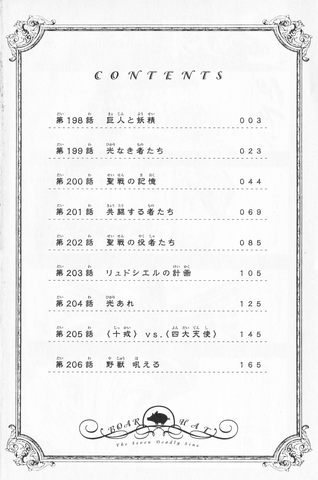 CONTENTS
第198話 巨人と妖精 003
第199話 光なき者たち 023
第200話 聖戦の記憶 044
第201話 共闘する者たち 069
第202話 聖戦の役者たち 085
第203話 リュドシエルの計画 105
第204話 光あれ 125
第205話 〈十戒〉 vs.〈四大天使〉 145
第206話 野獣 吠える 165
BOAR HAT
The Seven Deadly Sins